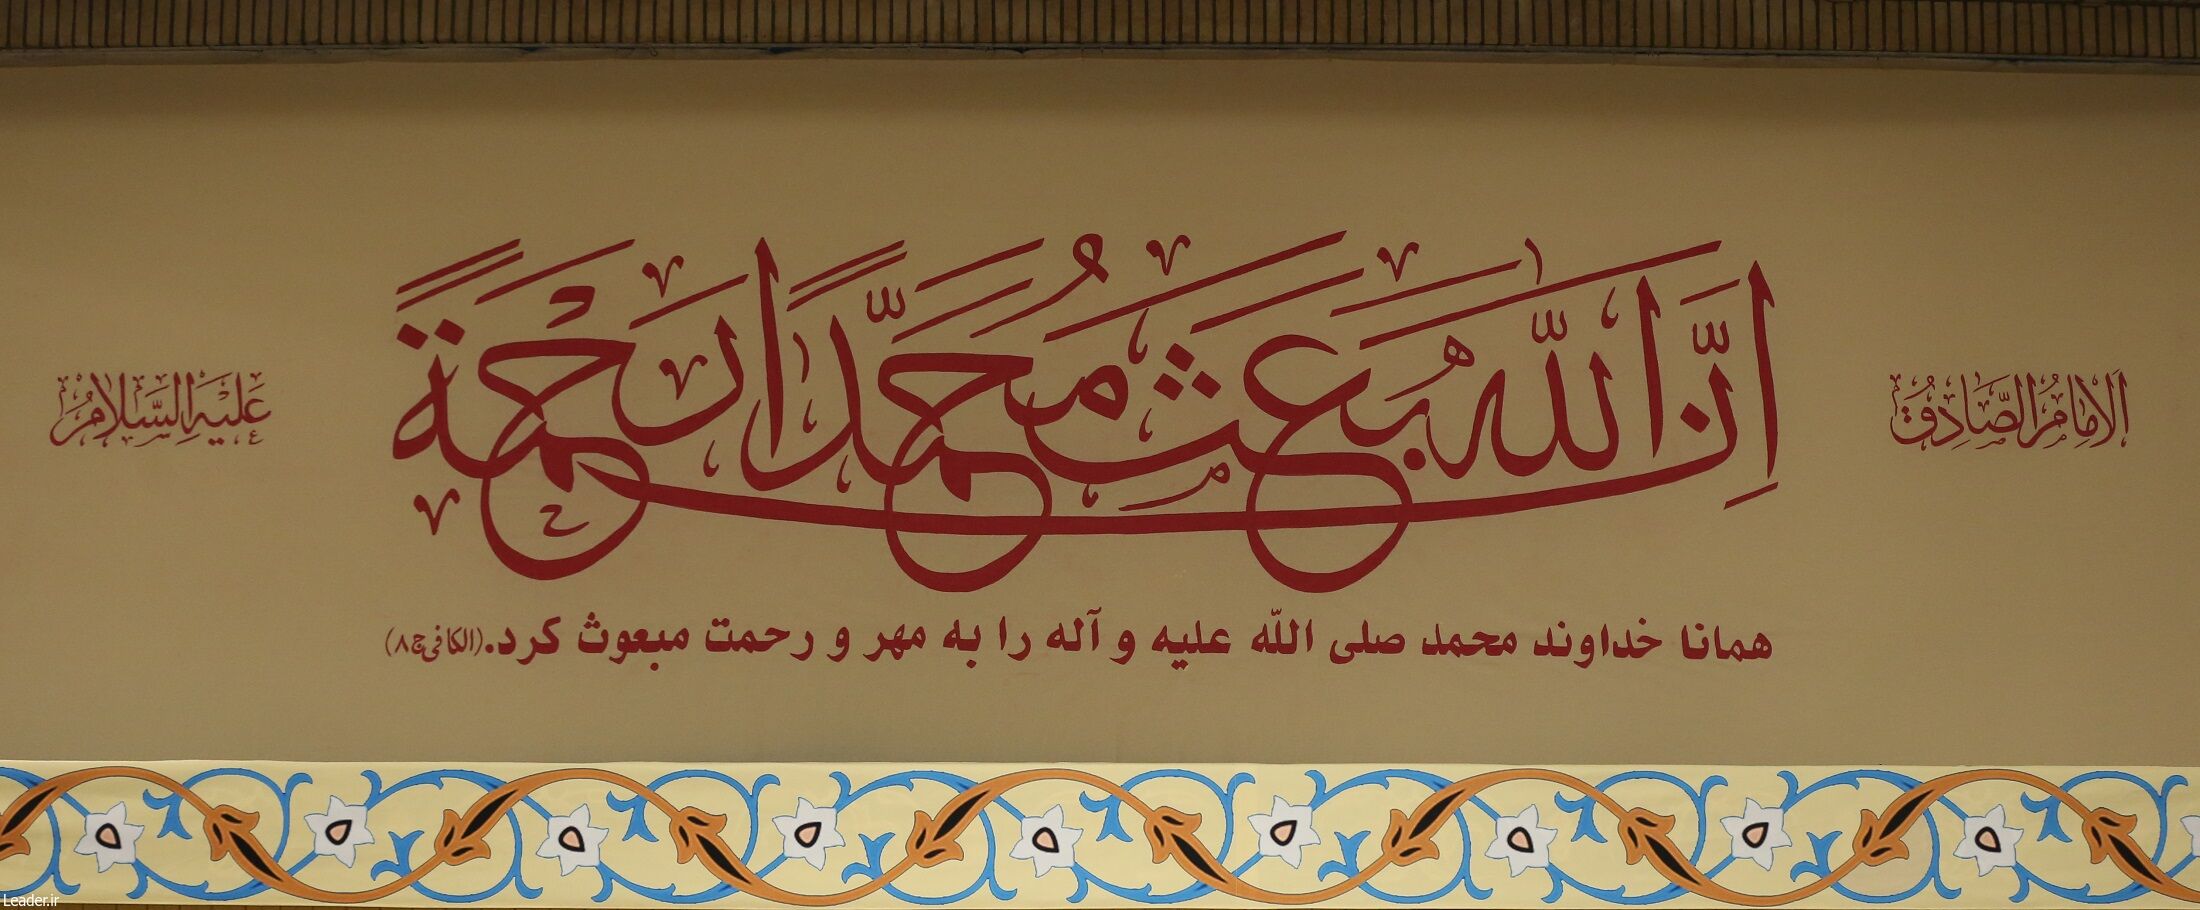 الإمام الصادق
إنَّ اللهَ بَعَثَ مُحَمَّدًا رَحمَةً
عَلَيْهِ السَّلامُ
همانا خداوند محمد صلی اللّه علیه و آله را به مهر و رحمت مبعوث کرد.(الکافی‌ج۸)
Leader.ir